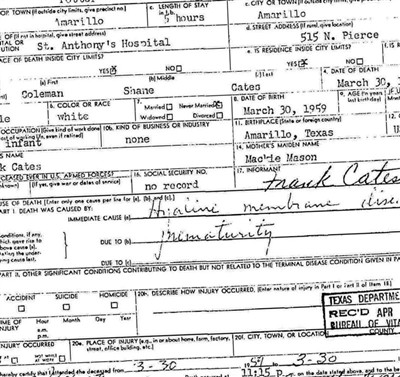 OR TOWN (If outside city limits, give precinct no.) c. LENGTH OF STAY c. CITY OR TOWN (If outside city limits, give
Amarillo 5 hours Amarillo
(If not in hospital, give street address) d. STREET ADDRESS (If rural, give location)
St. Anthony's Hospital 515 N. Pierce
PLACE OF DEATH INSIDE CITY LIMITS? e. IS RESIDENCE INSIDE CITY LIMITS?
YES NO YES
(a) First (b) Middle (c) Last 4. DATE OF DEATH
Coleman Shane Cates March 30, 1
6. COLOR OR RACE 7. Married Never Married 8. DATE OF BIRTH 9. AGE (In years
white Widowed Divorced March 30, 1959
OCCUPATION (Give kind of work done 10b. KIND OF BUSINESS OR INDUSTRY 11. BIRTHPLACE (State or foreign country)
of working life, even if retired)
infant none Amarillo, Texas U
NAME 14. MOTHER'S MAIDEN NAME
Cates Mason
DECEASED EVER IN U.S. ARMED FORCES? 16. SOCIAL SECURITY NO. 17. INFORMANT
(If yes, give war or dates of service) no record Frank Cates
OF DEATH [Enter only one cause per line for (a), (b), and (c).]
PART I. DEATH WAS CAUSED BY:
IMMEDIATE CAUSE (a) Hyaline membrane dise
Conditions, if any, which gave rise to above cause (a), stating the underlying cause last. DUE TO (b) prematurity
DUE TO (c)
PART II. OTHER SIGNIFICANT CONDITIONS CONTRIBUTING TO DEATH BUT NOT RELATED TO THE TERMINAL DISEASE CONDITION GIVEN IN PA
ACCIDENT SUICIDE HOMICIDE 20b. DESCRIBE HOW INJURY OCCURRED. (Enter nature of injury in Part I or Part II of Item 18)
TIME OF INJURY Hour Month Day Year
a.m.
p.m.
TEXAS DEPARTME
REC'D APR
BUREAU OF VITA
INJURY OCCURRED 20e. PLACE OF INJURY (e.g., in or about home, farm, factory, street, office building, etc.) 20f. CITY, TOWN, OR LOCATION COUNTY
NOT WHILE AT WORK
hereby certify that I attended the deceased from 3-30 1959 3-30
11:15 p. m. on the date stated above, and to